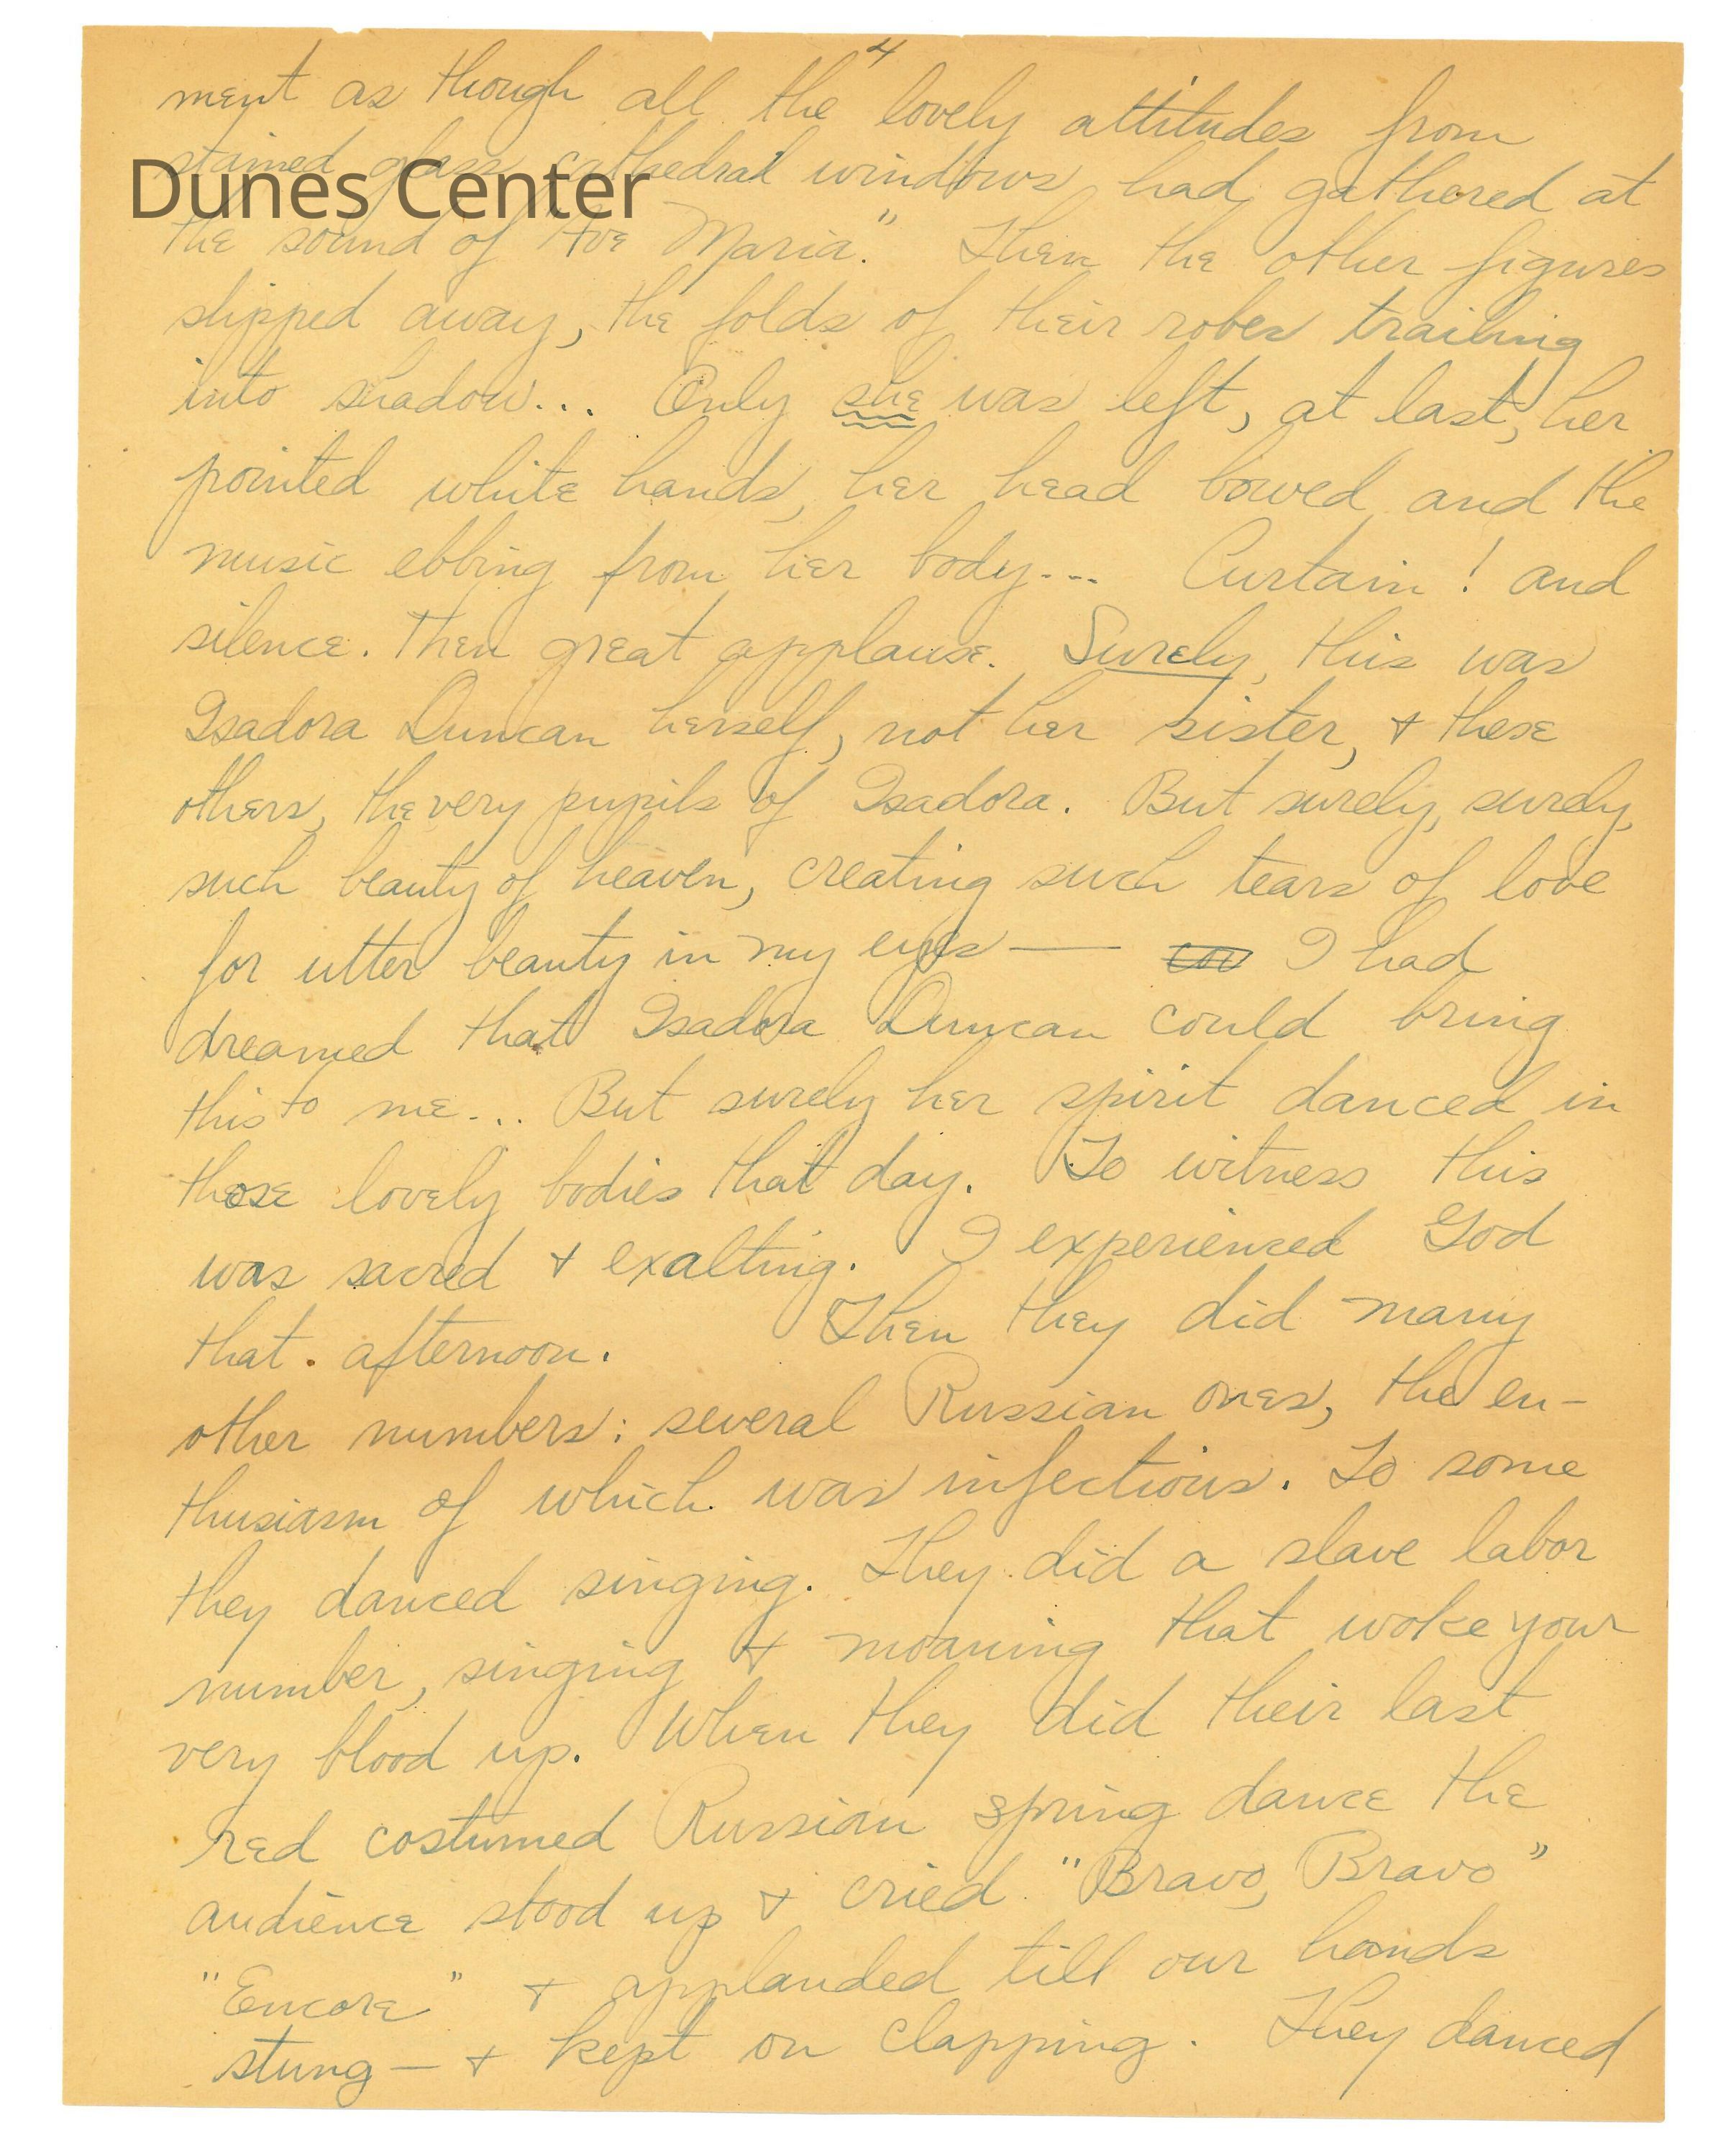 4
ment as though all the lovely attitudes from
stained glass cathedral windows had gathered at
Dunes Center
the sound of "Ave Maria." Then the other figures
slipped away, the folds of their robes trailing
into shadow... Only she was left, at last, her
pointed white hands, her head bowed and the
music ebbing from her body... Curtain! and
silence. Then great applause. Surely, this was
Isadora Duncan herself, not her sister, + these
others, the very pupils of Isadora. But surely, surely,
such beauty of heaven, creating such tears of love
for utter beauty in my eyes — I had
dreamed that Isadora Duncan could bring
this to me... But surely her spirit danced in
those lovely bodies that day. To witness this
was sacred + exalting. I experienced God
that afternoon. Then they did many
other numbers: several Russian ones, the en-
thusiasm of which was infectious. To some
they danced singing. They did a slave labor
number, singing + moaning that woke your
very blood up. When they did their last
red costumed Russian spring dance the
audience stood up + cried "Bravo, Bravo"
"Encore" + applauded till our hands
stung — + kept on clapping. They danced